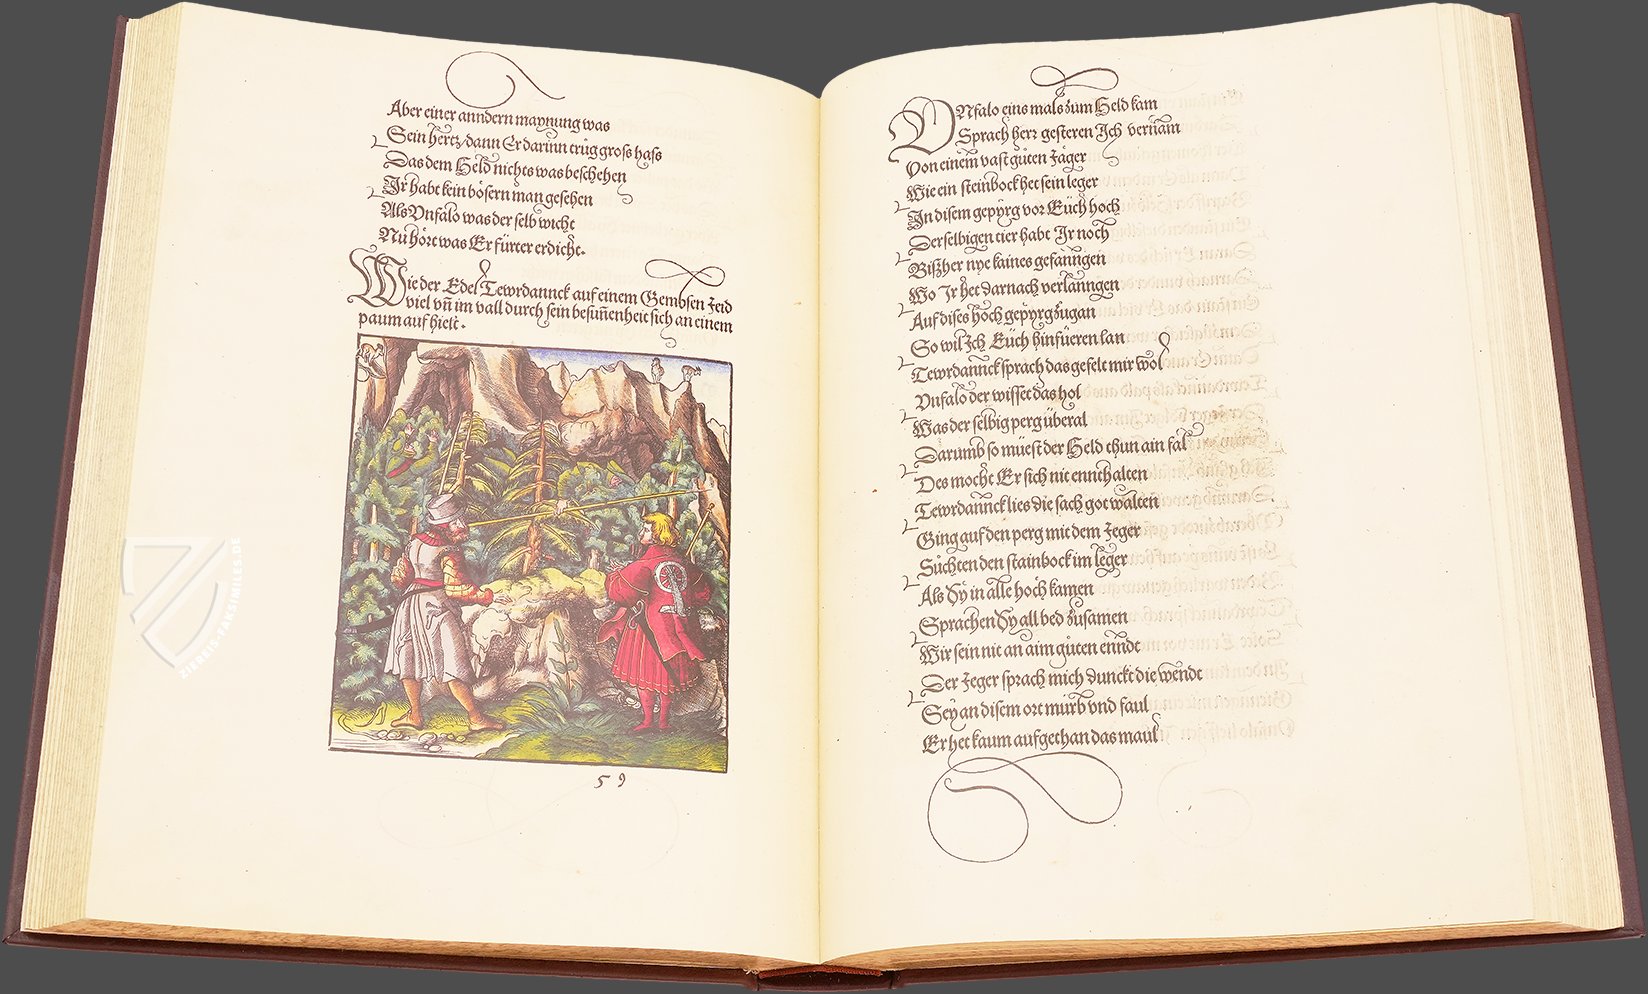 Aber einer anndern maynung was
Sein hertz/dann Er darinn trůg gross hass
Das dem Held nichts was beschehen
Ir habt kein bösern man gesehen
Als Vnfalo was der selb wicht
Nů hört was Er fürter erdicht.
Wie der Edel Tewrdannck auf einem Gembsen Jeid
viel vñ im vall durch sein besuñenheit sich an einem
paum auf hielt.
59
VNfalo eins mals zům Held kam
Sprach herr gesteren Ich vernam
Von einem vast gůten Jäger
Wie ein steinbock het sein leger
In disem gepyrg vor Eüch hoch
Derselbigen tier habt Ir noch
Biszher nye kaines gefanngen
Wo Ir het darnach verlanngen
Auf dises hoch gepyrg zůgan
So wil Ich Eüch hinfüeren lan
Tewrdannck sprach das gefelt mir wol
Vnfalo der wisset das hol
Was der selbig perg überal
Darumb so müest der Held thun ain fal
Des mocht Er sich nit ennthalten
Tewrdannck lies die sach got walten
Ging auf den perg mit dem Jeger
Sůchten den stainbock im leger
Als Sy in alle hoch kamen
Sprachen Sy all bed zůsamen
Wir sein nit an aim gůten ennde
Der Jeger sprach mich dunckt die wendt
Sey an disem ort mürb vnd faul
Er het kaum aufgethan das maul
ZIEREIS-FAKSIMILES.DE